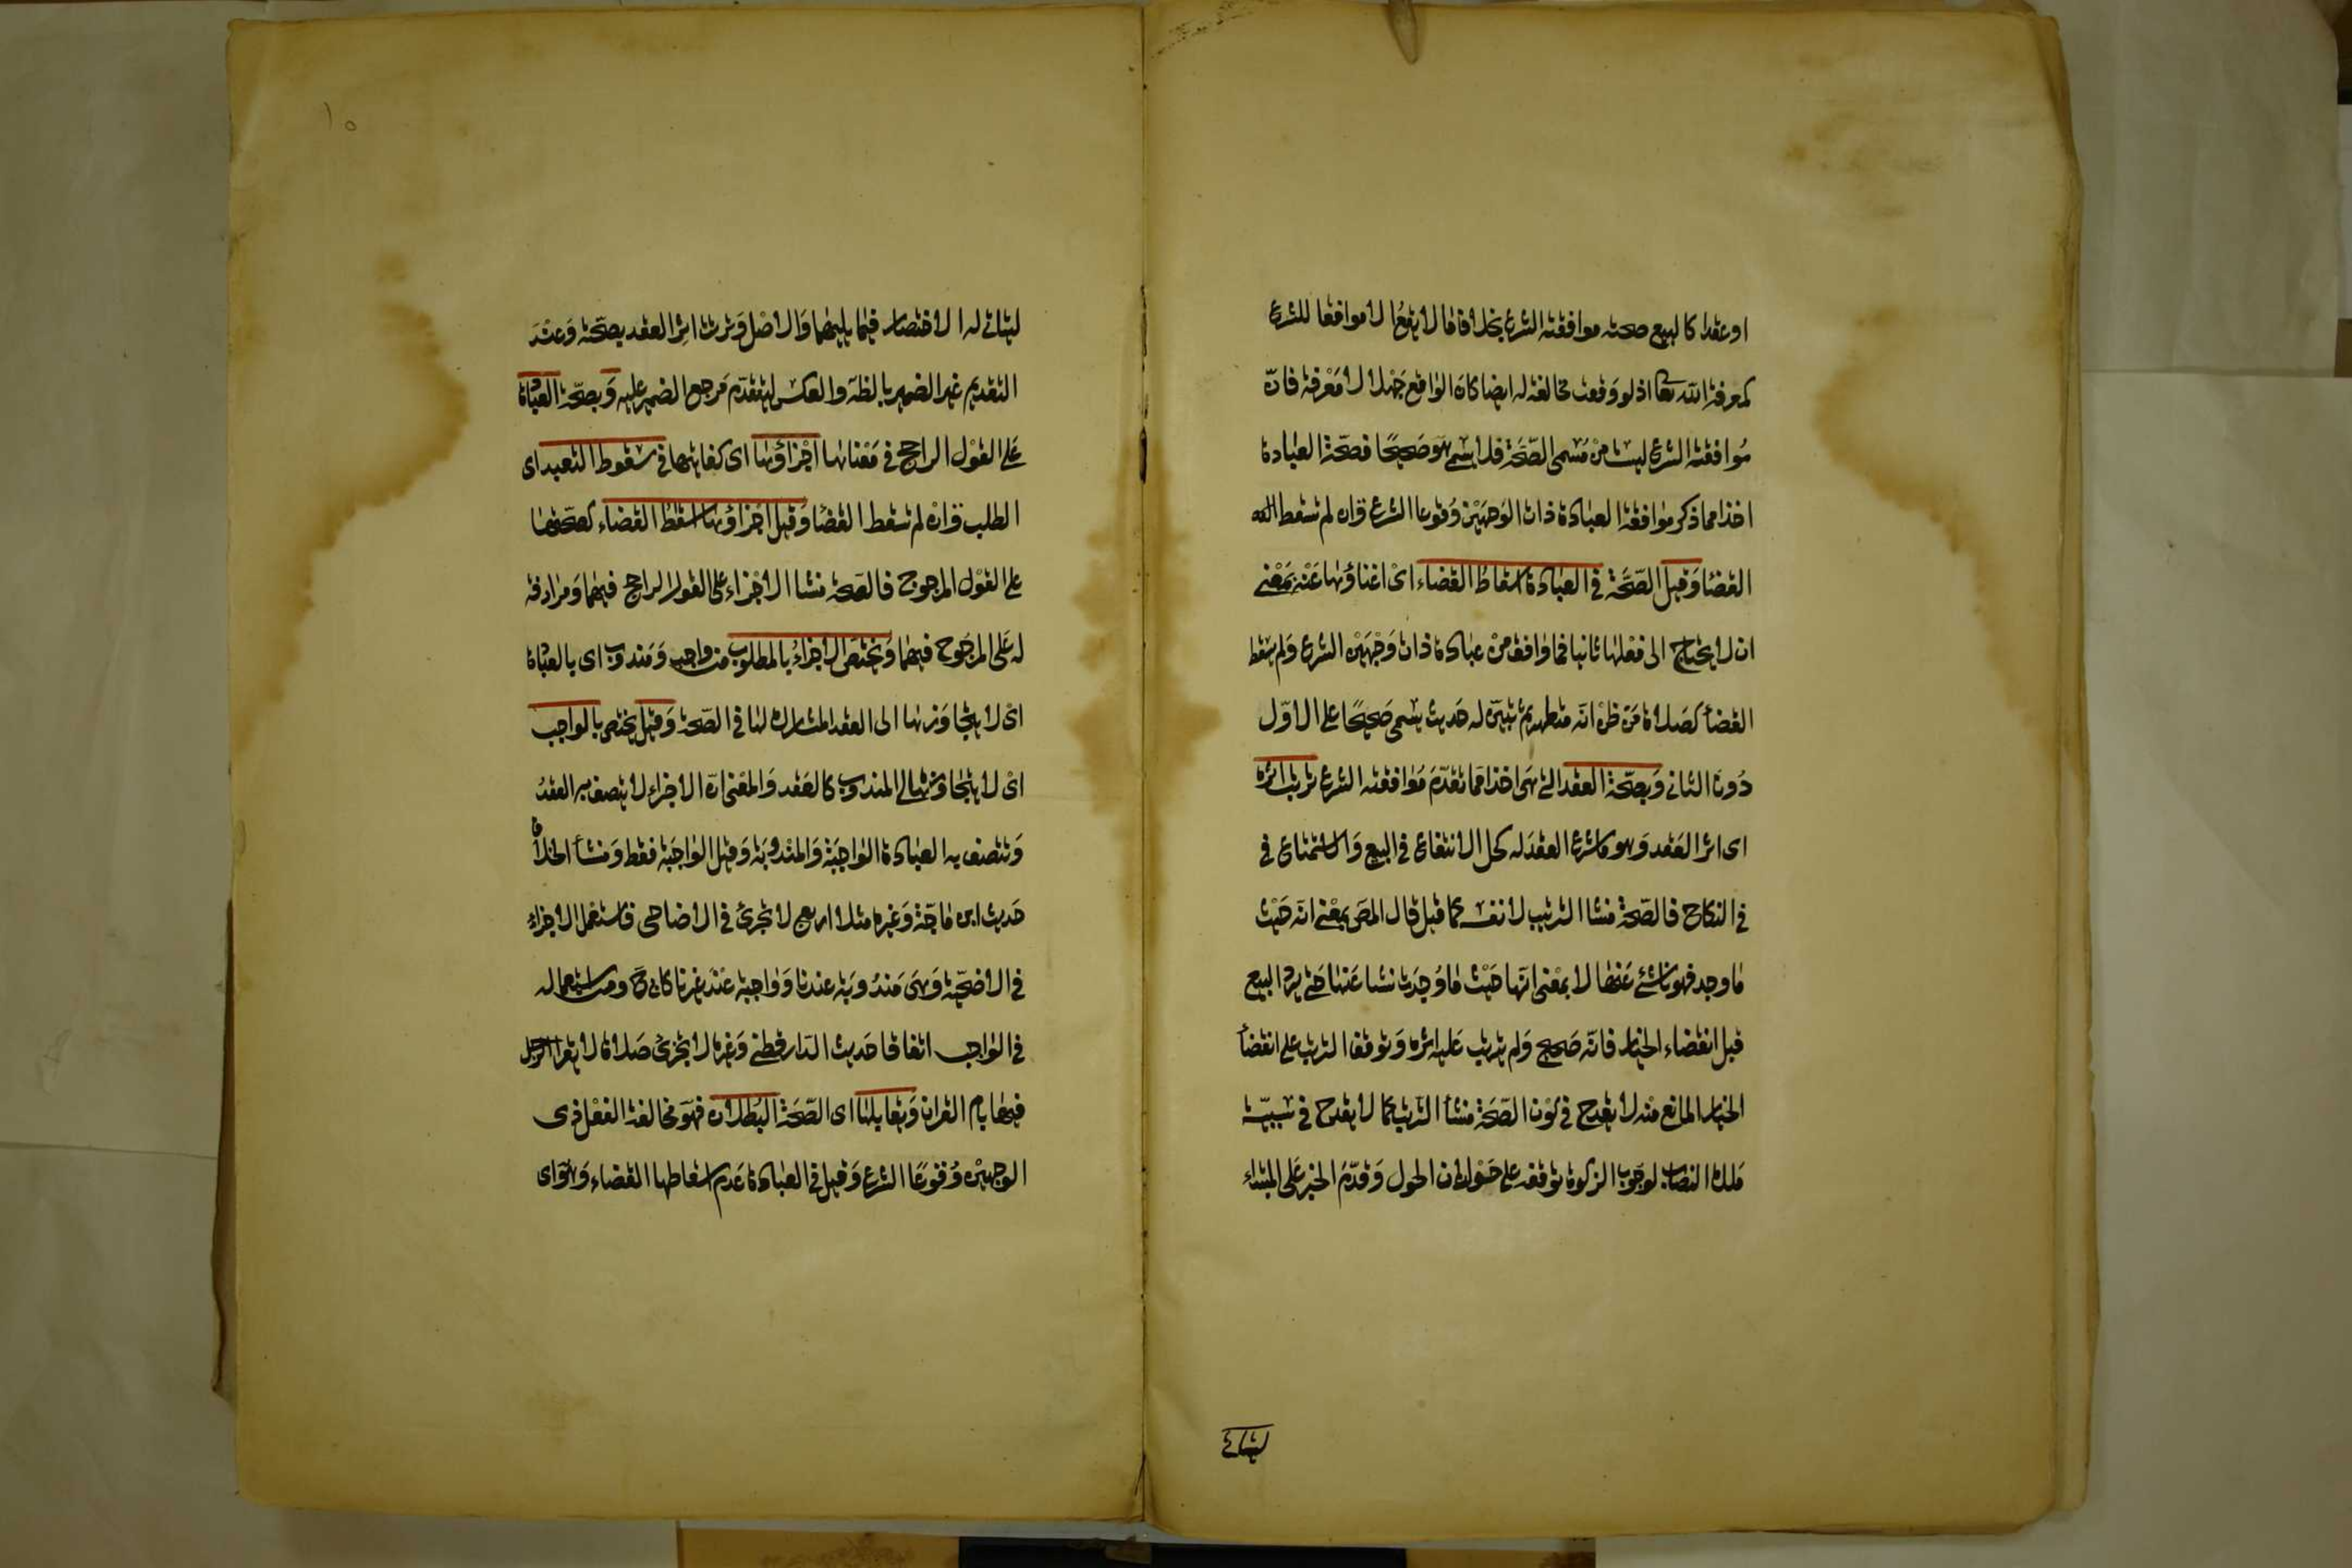 او عقدا كالبيع صحته موافقته الشرع بخلاف ما لا يقع الا موافقا للشرع
كمعرفة الله تعا اذ لو وقعت مخالفة له ايضا كان الواقع جهلا لا معرفة فان
موافقته الشرع ليست من مسمى الصحة فلا يسمى هو صحيحا فصحة العبادة
اخذا مما ذكر موافقة العبادة ذات الوجهين وقوعا الشرع وان لم تسقط
القضا وقيل الصحة في العبادة اسقاط القضاء اى اغناؤها عنه بمعنى
ان لا يحتاج الى فعلها ثانيا فما وافق من عبادة ذات وجهين الشرع ولم يسقط
القضأ كصلاة من ظن انه متطهر ثم تبين له حدث يسمى صحيحا على الاول
دون الثانى وبصحة العقد التى هى اخذا مما تقدم موافقته الشرع ترتب اثره
اى اثر العقد وهو ما شرع العقد له كحل الانتفاع في البيع والاستمتاع في
في النكاح فالصحة منشا الترتيب لا نفسه كما قيل قال المص بمعنى انه حيث
ما وجد فهو ناشئ عنها لا بمعنى انها حيث ما وجدت نشا عنها حتى يرد البيع
قبل انقضاء الخيار فانه صحيح ولم يترتب عليه اثره وتوقف الترتب على انقضأ
الخيار المانع منه لا يقدح في كون الصحة منشأ الترتيب كما لا يقدح في سببية
ملك النصاب لوجوب الزكوة توقفه على حولان الحول وقدم الخبر على المبتداء
ليتاتى
١٥
ليتاتى له الاختصار فيما يليهما والاصل وترتب اثر العقد بصحته وعند
التقديم غير الضمير بالظاهر والعكس ليتقدم مرجع الضمير عليه وبصحة العبادة
على القول الراجح في معناها اجزاؤها اى كفايتها في سقوط التعبد اى
الطلب وان لم تسقط القضأ وقيل اجزاؤها اسقاط القضاء كصحتها
على القول المرجوح فالصحة منشا الاجزاء على القول الراجح فيهما ومرادفة
له على المرجوح فيهما ويختص الاجزاء بالمطلوب من واجب ومندوب اى بالعبادة
اى لا يتجاوزها الى العقد المشارك لها في الصحة وقيل يختص بالواجب
اى لا يتجاوزه الى المندوب كالعقد والمعنى ان الاجزاء لا يتصف به العقد
وتتصف به العبادة الواجبة والمندوبة وقيل الواجبة فقط ومنشأ الخلاف
حديث ابن ماجة وغيره مثلا اربع لا تجزئ في الاضاحى فاستعمل الاجزاء
في الاضحية وهى مندوبة عندنا وواجبة عند غيرنا كابى ح ومن استعماله
في الواجب اتفاقا حديث الدارقطنى وغيره لا تجزئ صلاة لا يقرا الرجل
فيها بام القران ويقابلها اى الصحة البطلان فهو مخالفة الفعل ذى
الوجهين وقوعا الشرع وقيل في العبادة عدم اسقاطها القضاء وهو اى